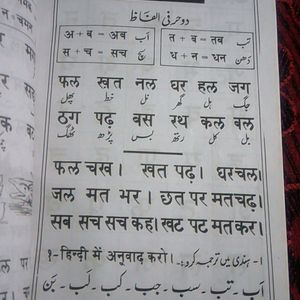 دو حرفی الفاظ
अ + ब = अब اَب त + ब = तब تب
स + च = सच سچ ध + न = धन دَھن
फल खत नल घर हल जग
پھل خط نل گھر ہل جگ
ठग पढ़ बस रथ कल बल
ٹھگ پڑھ بس رتھ کل بل
फल चख। खत पढ़। घर चल।
जल मत भर। छत पर मत चढ़।
सब सच सच कह। खट पट मत कर।
۱- ہندی میں ترجمہ کرو:
१- हिन्दी में अनुवाद करो।
اَب - تب - سب - جب - کب - لَب - بَن